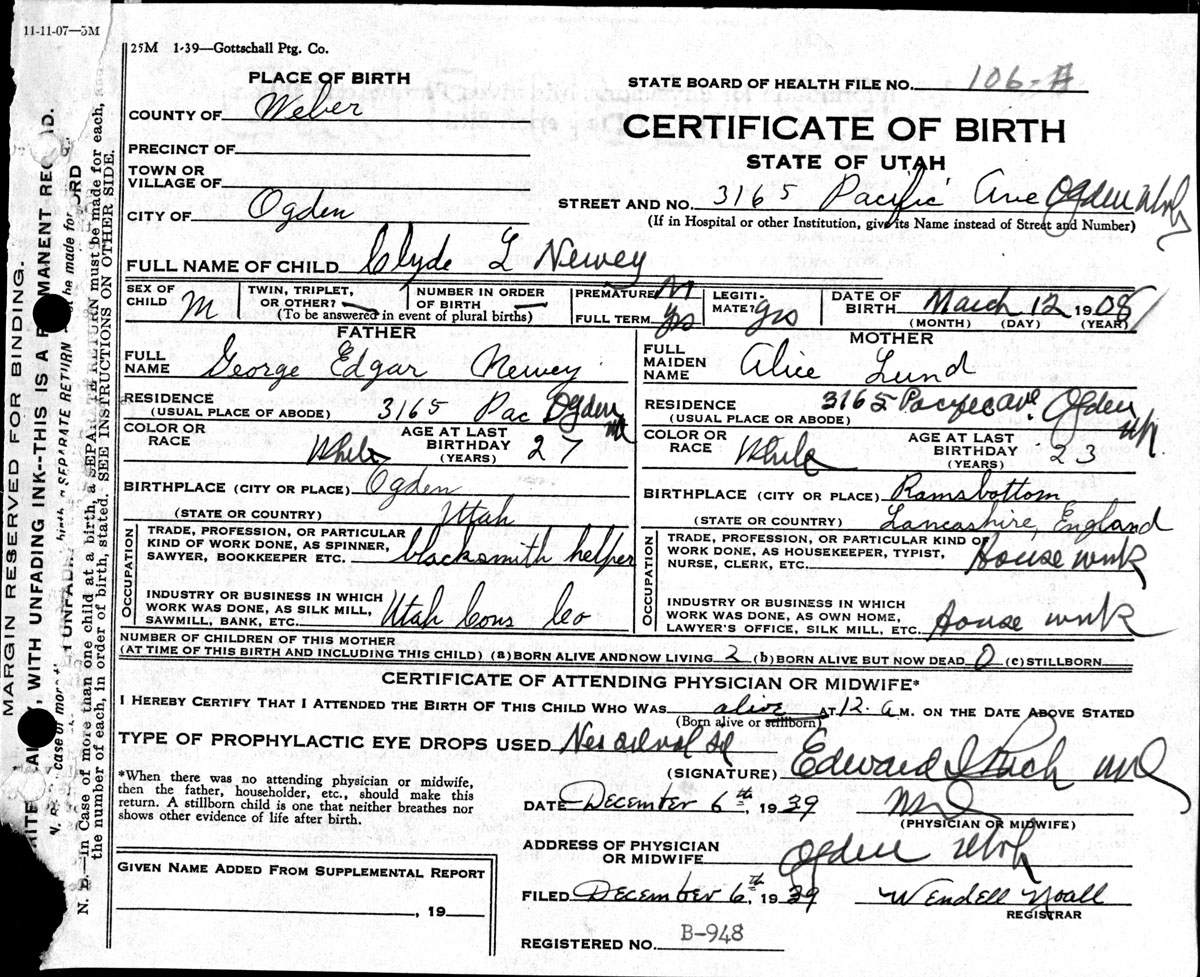 11-11-07—5M
25M 1-39—Gottschall Ptg. Co.
PLACE OF BIRTH
STATE BOARD OF HEALTH FILE NO. 106-A
COUNTY OF Weber
CERTIFICATE OF BIRTH
PRECINCT OF
STATE OF UTAH
TOWN OR
VILLAGE OF
CITY OF Ogden
STREET AND NO. 3165 Pacific Ave Ogden Utah
(If in Hospital or other Institution, give its Name instead of Street and Number)
FULL NAME OF CHILD Clyde L Newey
SEX OF CHILD M
TWIN, TRIPLET, OR OTHER?
NUMBER IN ORDER OF BIRTH
(To be answered in event of plural births)
PREMATURE
FULL TERM yes
LEGITIMATE? yes
DATE OF BIRTH March 12 1908
(MONTH) (DAY) (YEAR)
FATHER
FULL NAME George Edgar Newey
RESIDENCE (USUAL PLACE OF ABODE) 3165 Pac Ogden
COLOR OR RACE White
AGE AT LAST BIRTHDAY (YEARS) 27
BIRTHPLACE (CITY OR PLACE) Ogden
(STATE OR COUNTRY) Utah
OCCUPATION
TRADE, PROFESSION, OR PARTICULAR
KIND OF WORK DONE, AS SPINNER,
SAWYER, BOOKKEEPER ETC. blacksmith helper
INDUSTRY OR BUSINESS IN WHICH
WORK WAS DONE, AS SILK MILL,
SAWMILL, BANK, ETC. Utah Cons Co
MOTHER
FULL MAIDEN NAME Alice Lund
RESIDENCE (USUAL PLACE OF ABODE) 3165 Pacific ave. Ogden
COLOR OR RACE White
AGE AT LAST BIRTHDAY (YEARS) 23
BIRTHPLACE (CITY OR PLACE) Ramsbottom
(STATE OR COUNTRY) Lancashire, England
OCCUPATION
TRADE, PROFESSION, OR PARTICULAR KIND OF
WORK DONE, AS HOUSEKEEPER, TYPIST,
NURSE, CLERK, ETC. House work
INDUSTRY OR BUSINESS IN WHICH
WORK WAS DONE, AS OWN HOME,
LAWYER'S OFFICE, SILK MILL, ETC. House work
NUMBER OF CHILDREN OF THIS MOTHER
(AT TIME OF THIS BIRTH AND INCLUDING THIS CHILD) (a) BORN ALIVE AND NOW LIVING 2 (b) BORN ALIVE BUT NOW DEAD 0 (c) STILLBORN
CERTIFICATE OF ATTENDING PHYSICIAN OR MIDWIFE*
I HEREBY CERTIFY THAT I ATTENDED THE BIRTH OF THIS CHILD WHO WAS alive AT 12. a M. ON THE DATE ABOVE STATED
(Born alive or stillborn)
TYPE OF PROPHYLACTIC EYE DROPS USED
(SIGNATURE) Edward
*When there was no attending physician or midwife,
then the father, householder, etc., should make this
return. A stillborn child is one that neither breathes nor
shows other evidence of life after birth.
DATE December 6th, 1939
(PHYSICIAN OR MIDWIFE)
ADDRESS OF PHYSICIAN
OR MIDWIFE Ogden Utah
GIVEN NAME ADDED FROM SUPPLEMENTAL REPORT
, 19
FILED December 6th, 1939 Wendell Noall
REGISTRAR
REGISTERED NO. B-948
MARGIN RESERVED FOR BINDING.
, WITH UNFADING INK--THIS IS A
N. B.—In Case of more than one child at a birth, a SEPARATE RETURN must be made for each,
the number of each, in order of birth, stated. SEE INSTRUCTIONS ON OTHER SIDE.